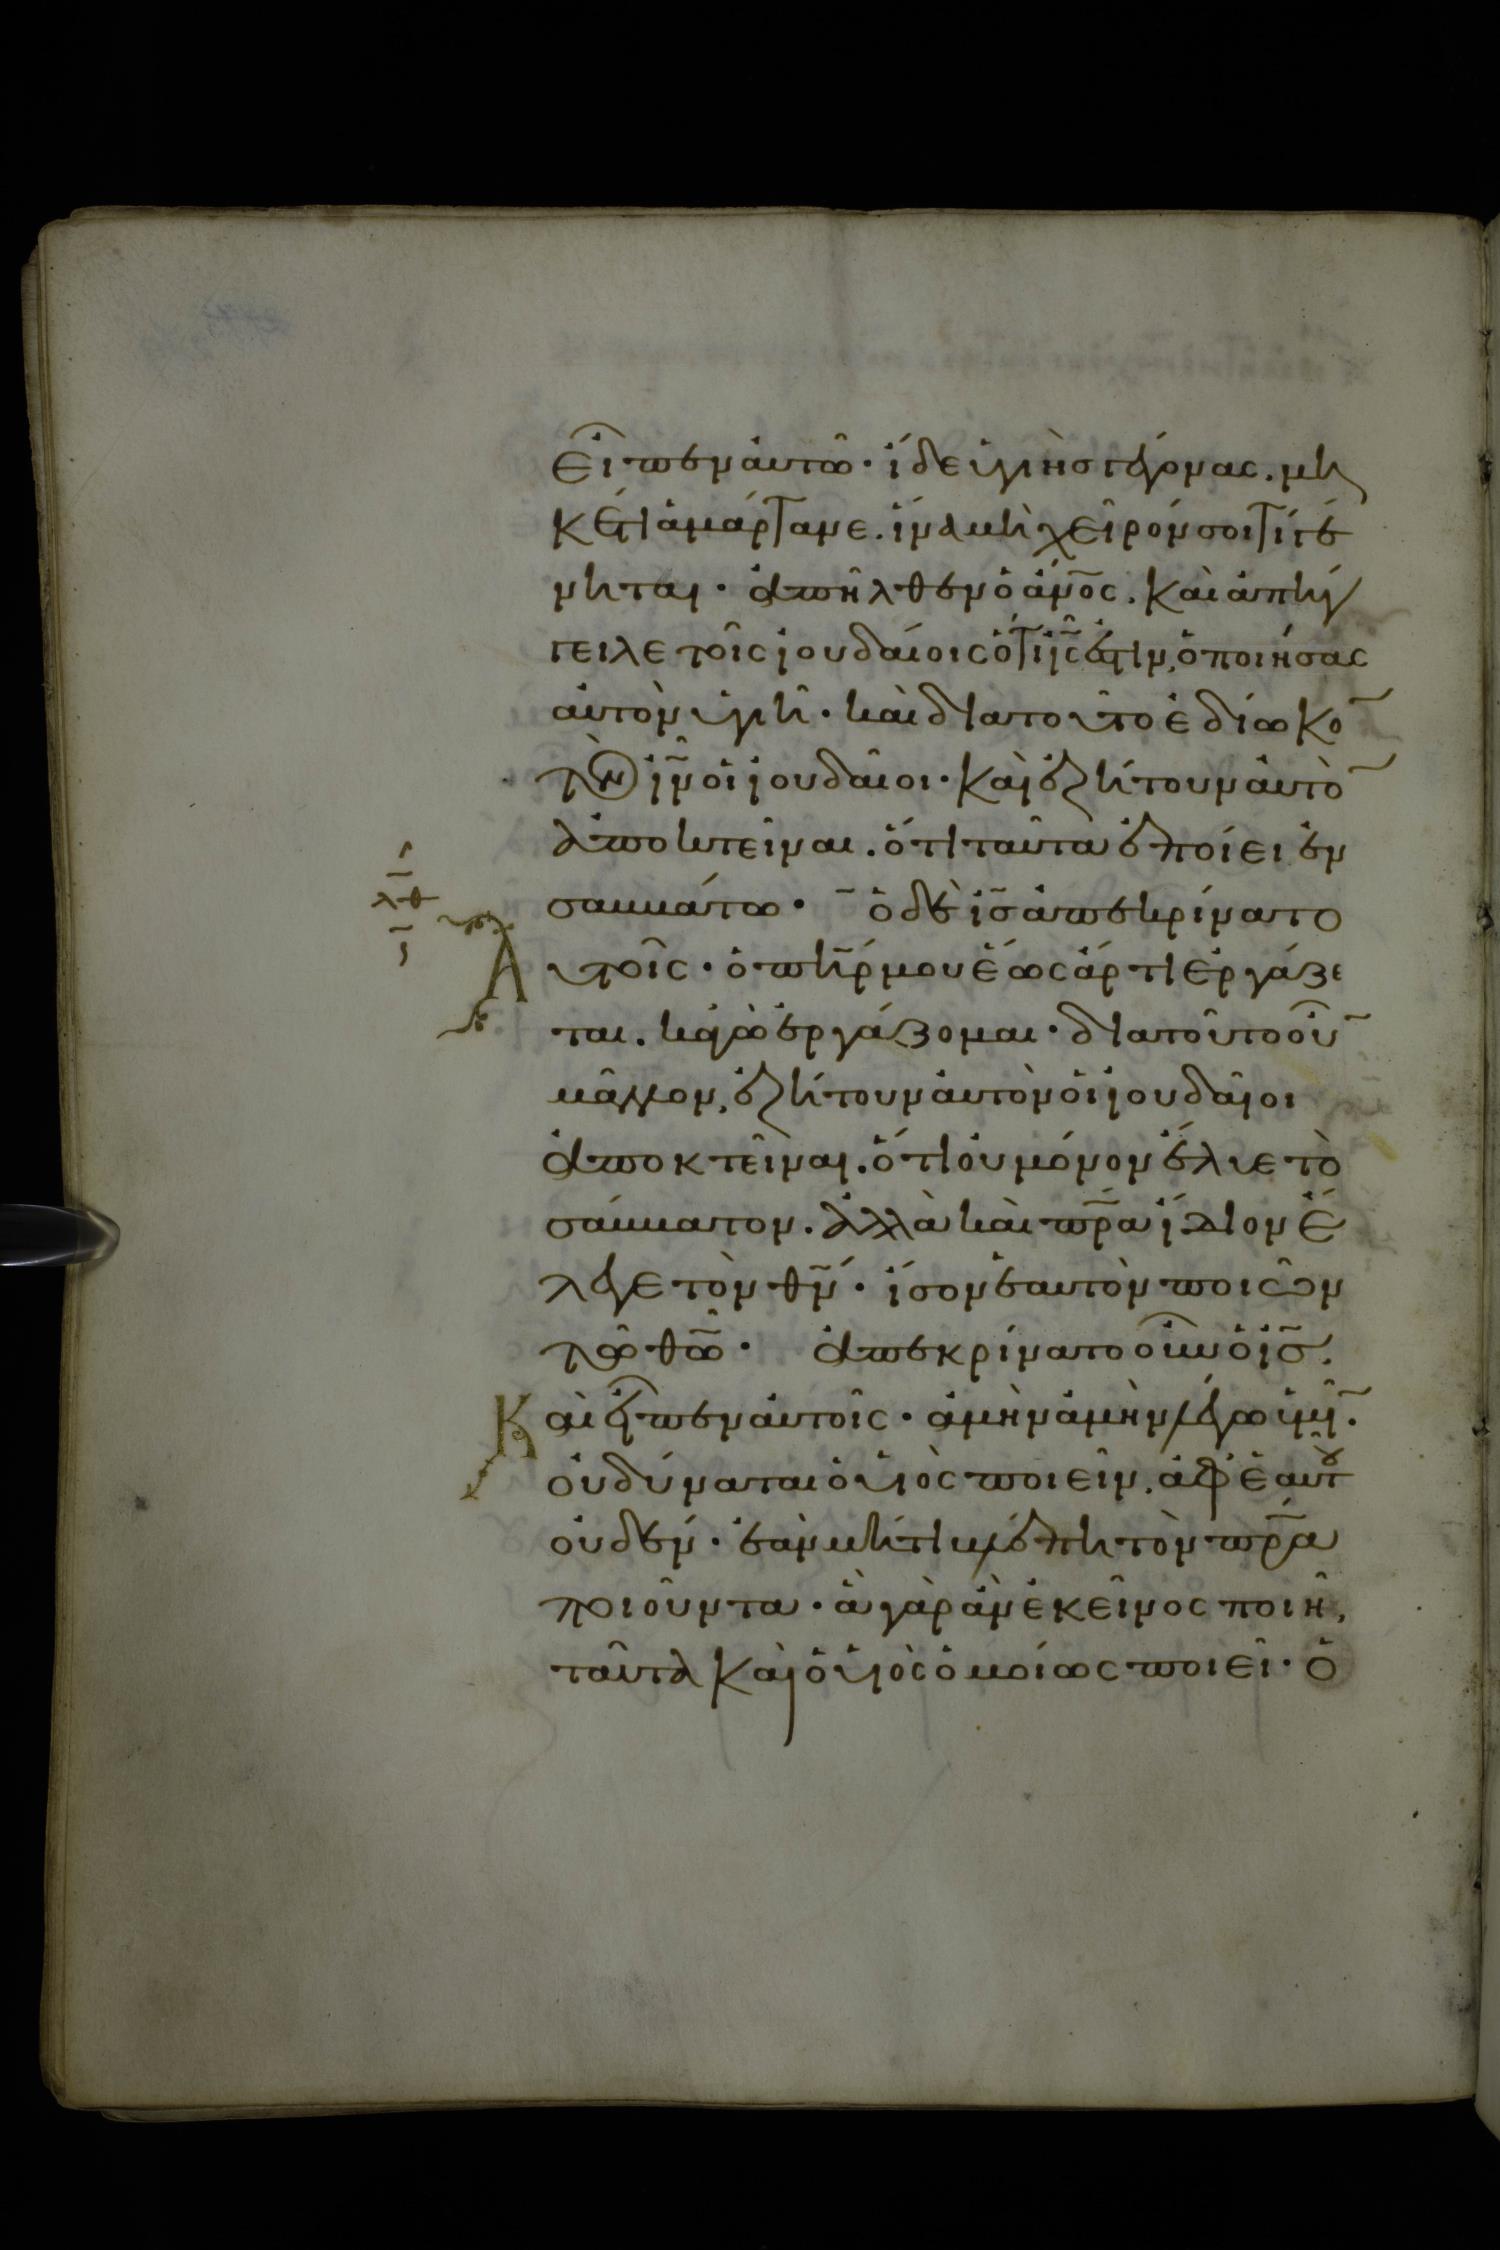 εἶπεν αὐτῶ· ἴδε ὑγιὴς γέγονας. μη
κέτι ἁμάρτανε. ἵνα μὴ χεῖρόν σοί τι γέ
νηται· ἀπῆλθεν ὁ ἄνος. καὶ ἀνήγ
γειλε τοῖς ἰουδαίοις ὅτι ις ἐστιν, ὁ ποιήσας
αὐτὸν ὑγιῆ· καὶ διατοῦτο ἐδίωκο
τὸν ιν οἱ ἰουδαῖοι· καὶ ἐζήτουν αὐτὸ
ἀποκτεῖναι. ὅτι ταῦτα ἐποίει ἐν
σαββάτω· ὁ δὲ ις ἀπεκρίνατο
αὐτοῖς· ὁ πηρ μου ἕως ἄρτι ἐργάζε
ται. κἀγὼ ἐργάζομαι· διατοῦτο οὖ
μᾶλλον, ἐζήτουν αὐτὸν οἱ ἰουδαῖοι
ἀποκτεῖναι. ὅτι οὐ μόνον ἔλυε τὸ
σάββατον. ἀλλὰ καὶ πρα ἴδιον ἔ
λεγε τὸν θν· ἴσον ἑαυτὸν ποιῶν
τῶ θω· ἀπεκρίνατο οὖν ὁ ις.
καὶ εἶπεν αὐτοῖς· ἀμὴν ἀμὴν λέγω ὑμῖ.
οὐ δύναται ὁ υἱὸς ποιεῖν. ἀφ' ἑαυτοῦ
οὐδέν· ἐὰν μή τι βλέπη τὸν πρα
ποιοῦντα· ἃ γὰρ ἂν ἐκεῖνος ποιῆ,
ταῦτα καὶ ὁ υἱὸς ὁμοίως ποιεῖ· ὁ